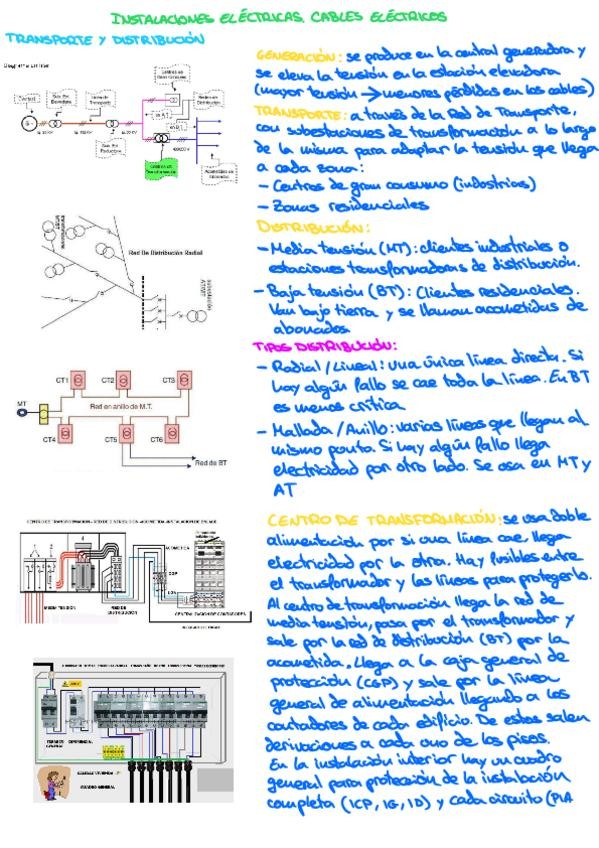 INSTALACIONES ELÉCTRICAS. CABLES ELÉCTRICOS
TRANSPORTE Y DISTRIBUCIÓN
GENERACIÓN: se produce en la central generadora y
se eleva la tensión en la estación elevadora
(mayor tensión → menores pérdidas en los cables)
TRANSPORTE: a través de la Red de Transporte,
con subestaciones de transformación a lo largo
de la misma para adaptar la tensión que llega
a cada zona:
- Centros de gran consumo (industrias)
- Zonas residenciales
DISTRIBUCIÓN:
- Media tensión (MT): clientes industriales o
estaciones transformadoras de distribución.
- Baja tensión (BT): Clientes residenciales.
Van bajo tierra y se llaman acometidas de
abonados
TIPOS DISTRIBUCIÓN:
- Radial / Lineal: una única línea directa. Si
hay algún fallo se cae toda la línea. En BT
es menos crítica
- Mallada / Anillo: varias líneas que llegan al
mismo punto. Si hay algún fallo llega
electricidad por otro lado. Se usa en MT y
AT
CENTRO DE TRANSFORMACIÓN: se usa doble
alimentación por si una línea cae, llega
electricidad por la otra. Hay fusibles entre
el transformador y las líneas para protegerlo.
Al centro de transformación llega la red de
media tensión, pasa por el transformador y
sale por la red de distribución (BT) por la
acometida. Llega a la caja general de
protección (CGP) y sale por la línea
general de alimentación llegando a los
contadores de cada edificio. De estos salen
derivaciones a cada uno de los pisos.
En la instalación interior hay un cuadro
general para protección de la instalación
completa (ICP, IG, ID) y cada circuito (PIA
Central
Red De Distribución Radial
CT1
CT2
CT3
MT
Red en anillo de M.T.
CT4
CT5
CT6
Red de BT
MEDIA TENSION
RED DE
DISTRIBUCION
ACOMETIDA
CGP
DIFERENCIAL
CUADRO GENERAL